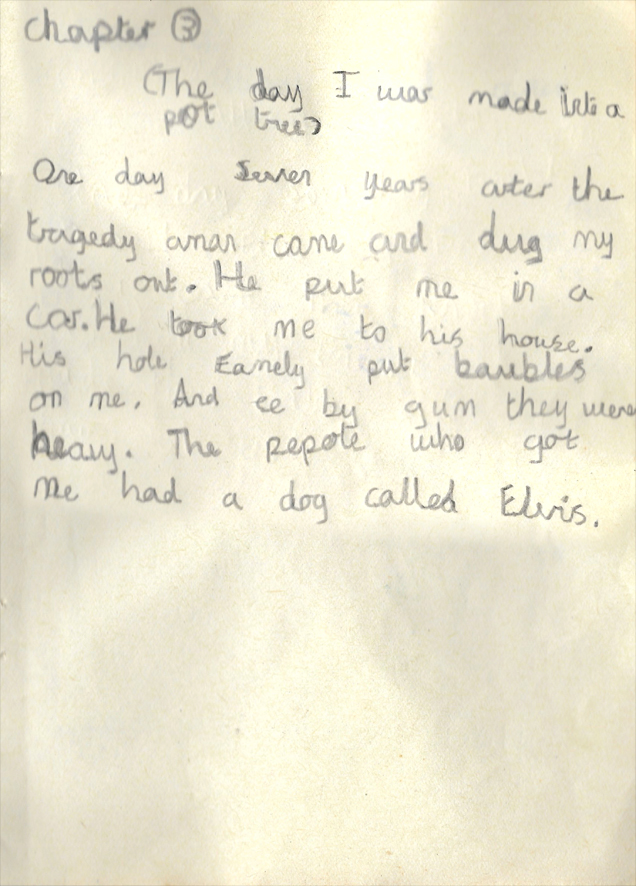 Chapter ③
(The day I was made into a
pot tree)
One day seven years arter the
tragedy aman came and dug my
roots out. He put me in a
Car. He took me to his house.
His hole Famely put baubles
on me. And ee by gum they were
heavy. The pepole who got
me had a dog called Elvis.